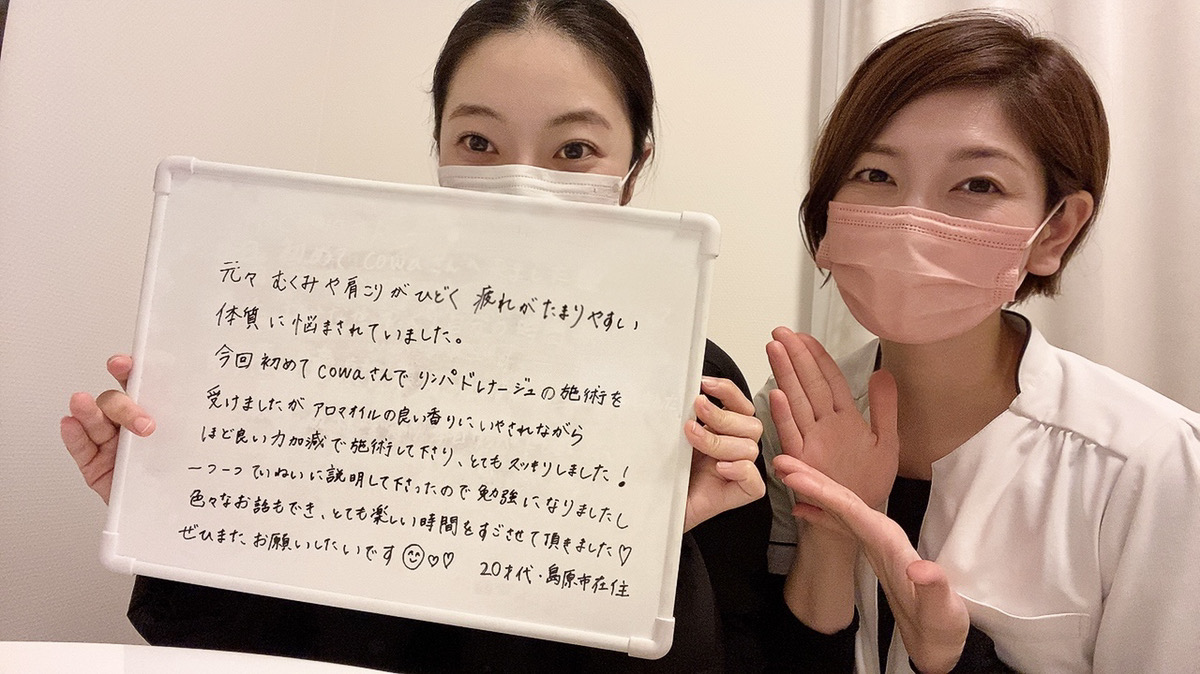 元々 むくみや肩こりがひどく 疲れがたまりやすい
体質に悩まされていました。
今回初めてcowaさんでリンパドレナージュの施術を
受けましたが アロマオイルの良い香りにいやされながら
ほど良い力加減で施術して下さり、とてもスッキリしました!
一つ一つていねいに説明して下さったので勉強になりましたし
色々なお話もでき、とても楽しい時間をすごさせて頂きました♡
ぜひまた お願いしたいです😊♡♡
20才代・島原市在住